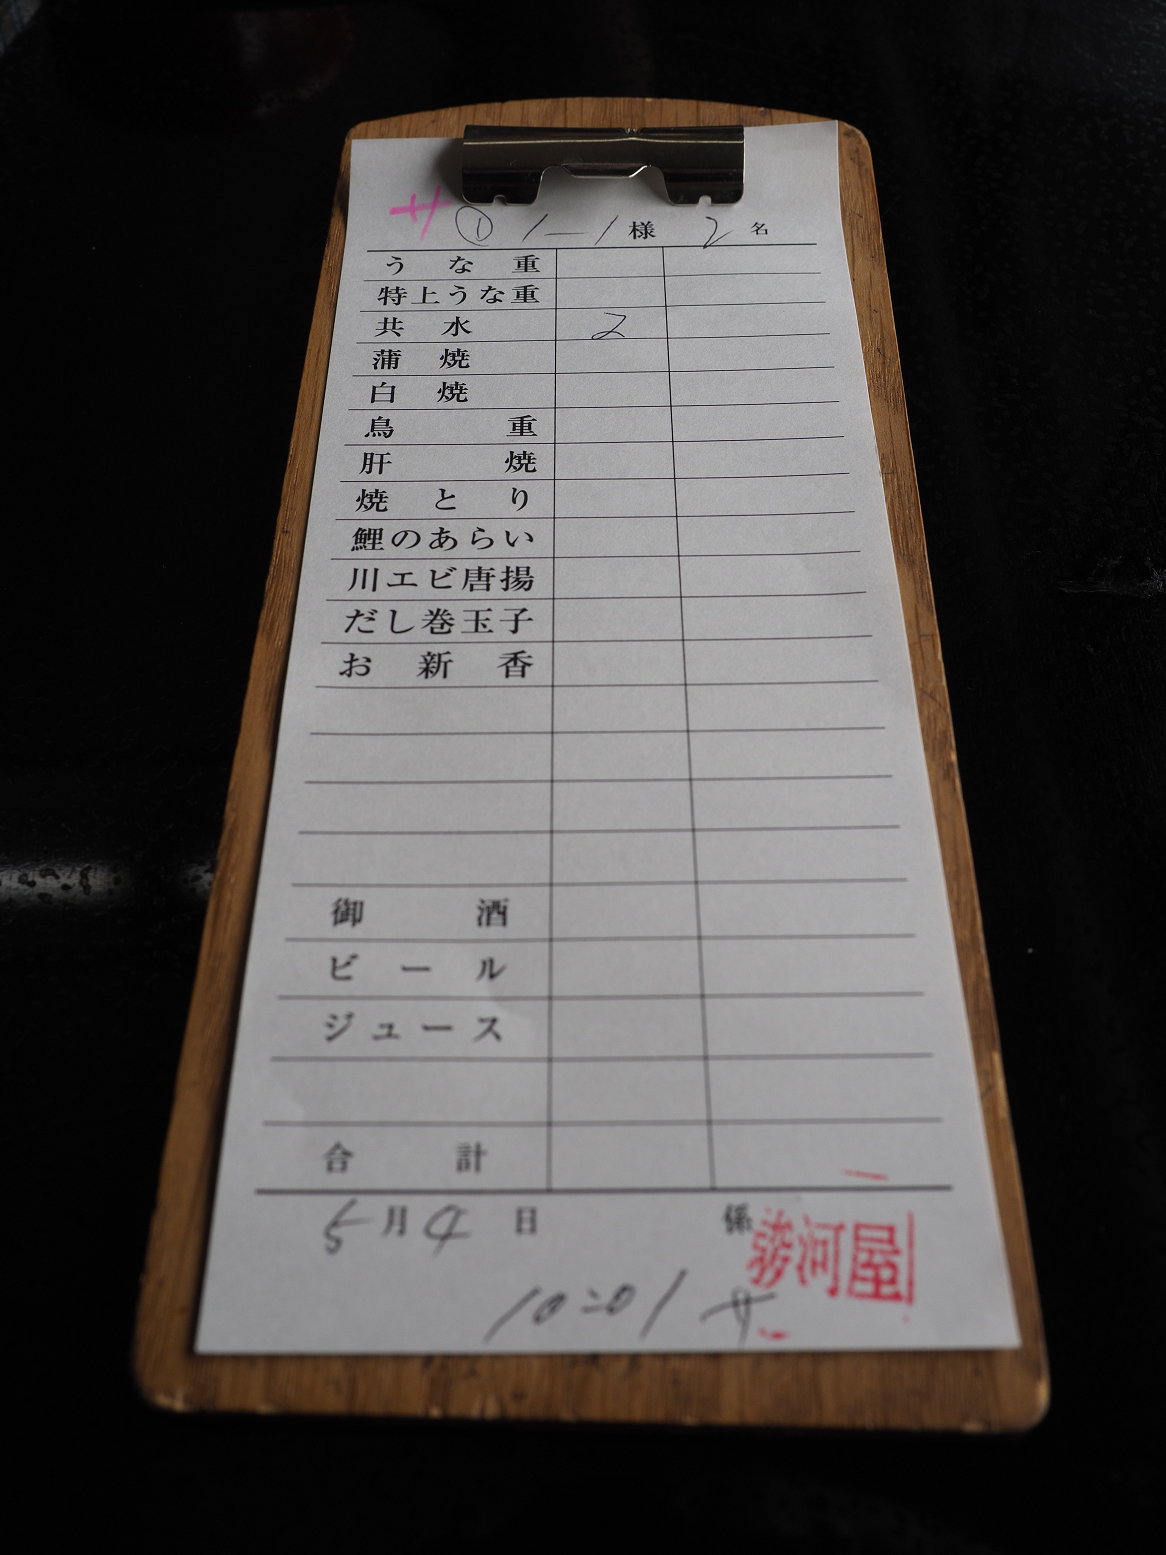 サ ① 1-1 様 2 名
うな重
特上うな重
共水 2
蒲焼
白焼
鳥重
肝焼
焼とり
鯉のあらい
川エビ唐揚
だし巻玉子
お新香
御酒
ビール
ジュース
合計
5月4日 係
駿河屋
10:01 サ